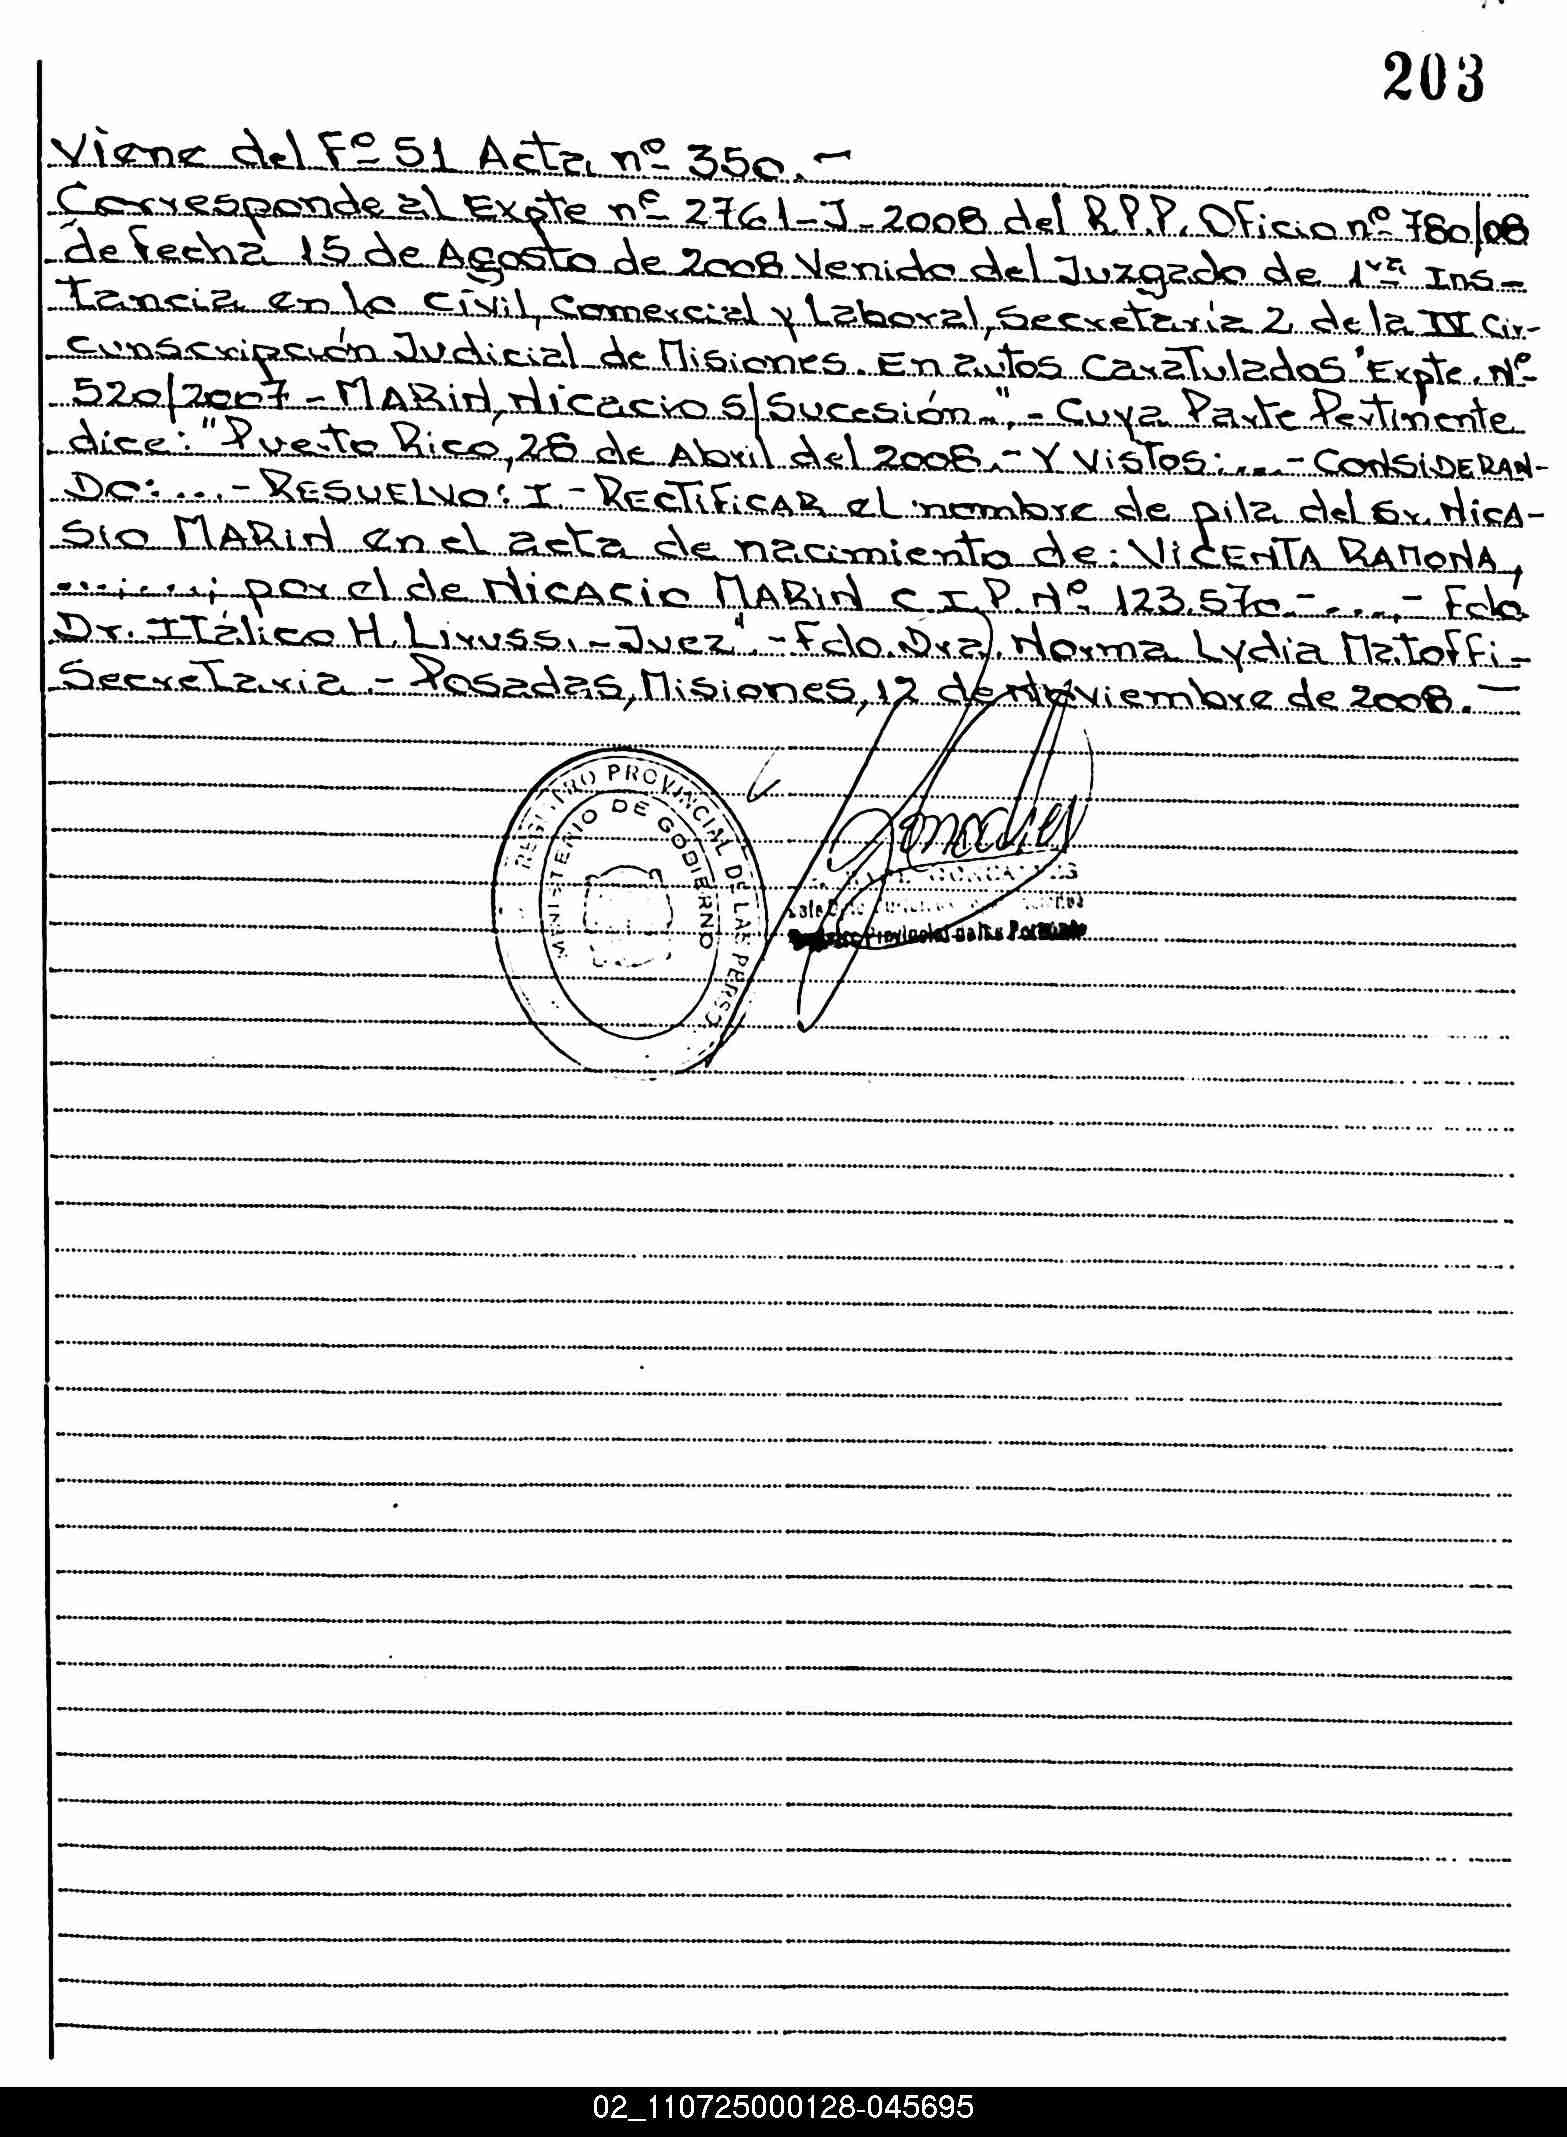 203
Viene del Fº 51 Acta nº 350.-
Corresponde al Expte nº 2761-J-2008 del R.P.P. Oficio nº 780/08
de fecha 15 de Agosto de 2008 Venido del Juzgado de 1ra Ins-
tancia en lo Civil, Comercial y Laboral, Secretaría 2 de la IV Cir-
cunscripción Judicial de Misiones. En autos Caratulados "Expte. Nº
520/2007 - MARIN, Nicacio s/ Sucesión.-".- Cuya Parte Pertinente
dice: "Puerto Rico, 28 de Abril del 2008.- Y Vistos:...- CONSIDERAN-
DO:...- RESUELVO: I - RECTIFICAR el nombre de pila del Sr. NICA-
SIO MARIN en el acta de nacimiento de: VICENTA RAMONA,
...;...; por el de NICACIO MARIN C.I.P. Nº 123.570.-...- Fdo
Dr. Itálico H. Lirussi.-Juez".- Fdo. Dra. Norma Lydia Matoffi-
Secretaria.- Posadas, Misiones, 12 de Noviembre de 2008.-
REGISTRO PROVINCIAL DE LAS PERSO
MINISTERIO DE GOBIERNO
Provincial de las Personas
02_110725000128-045695